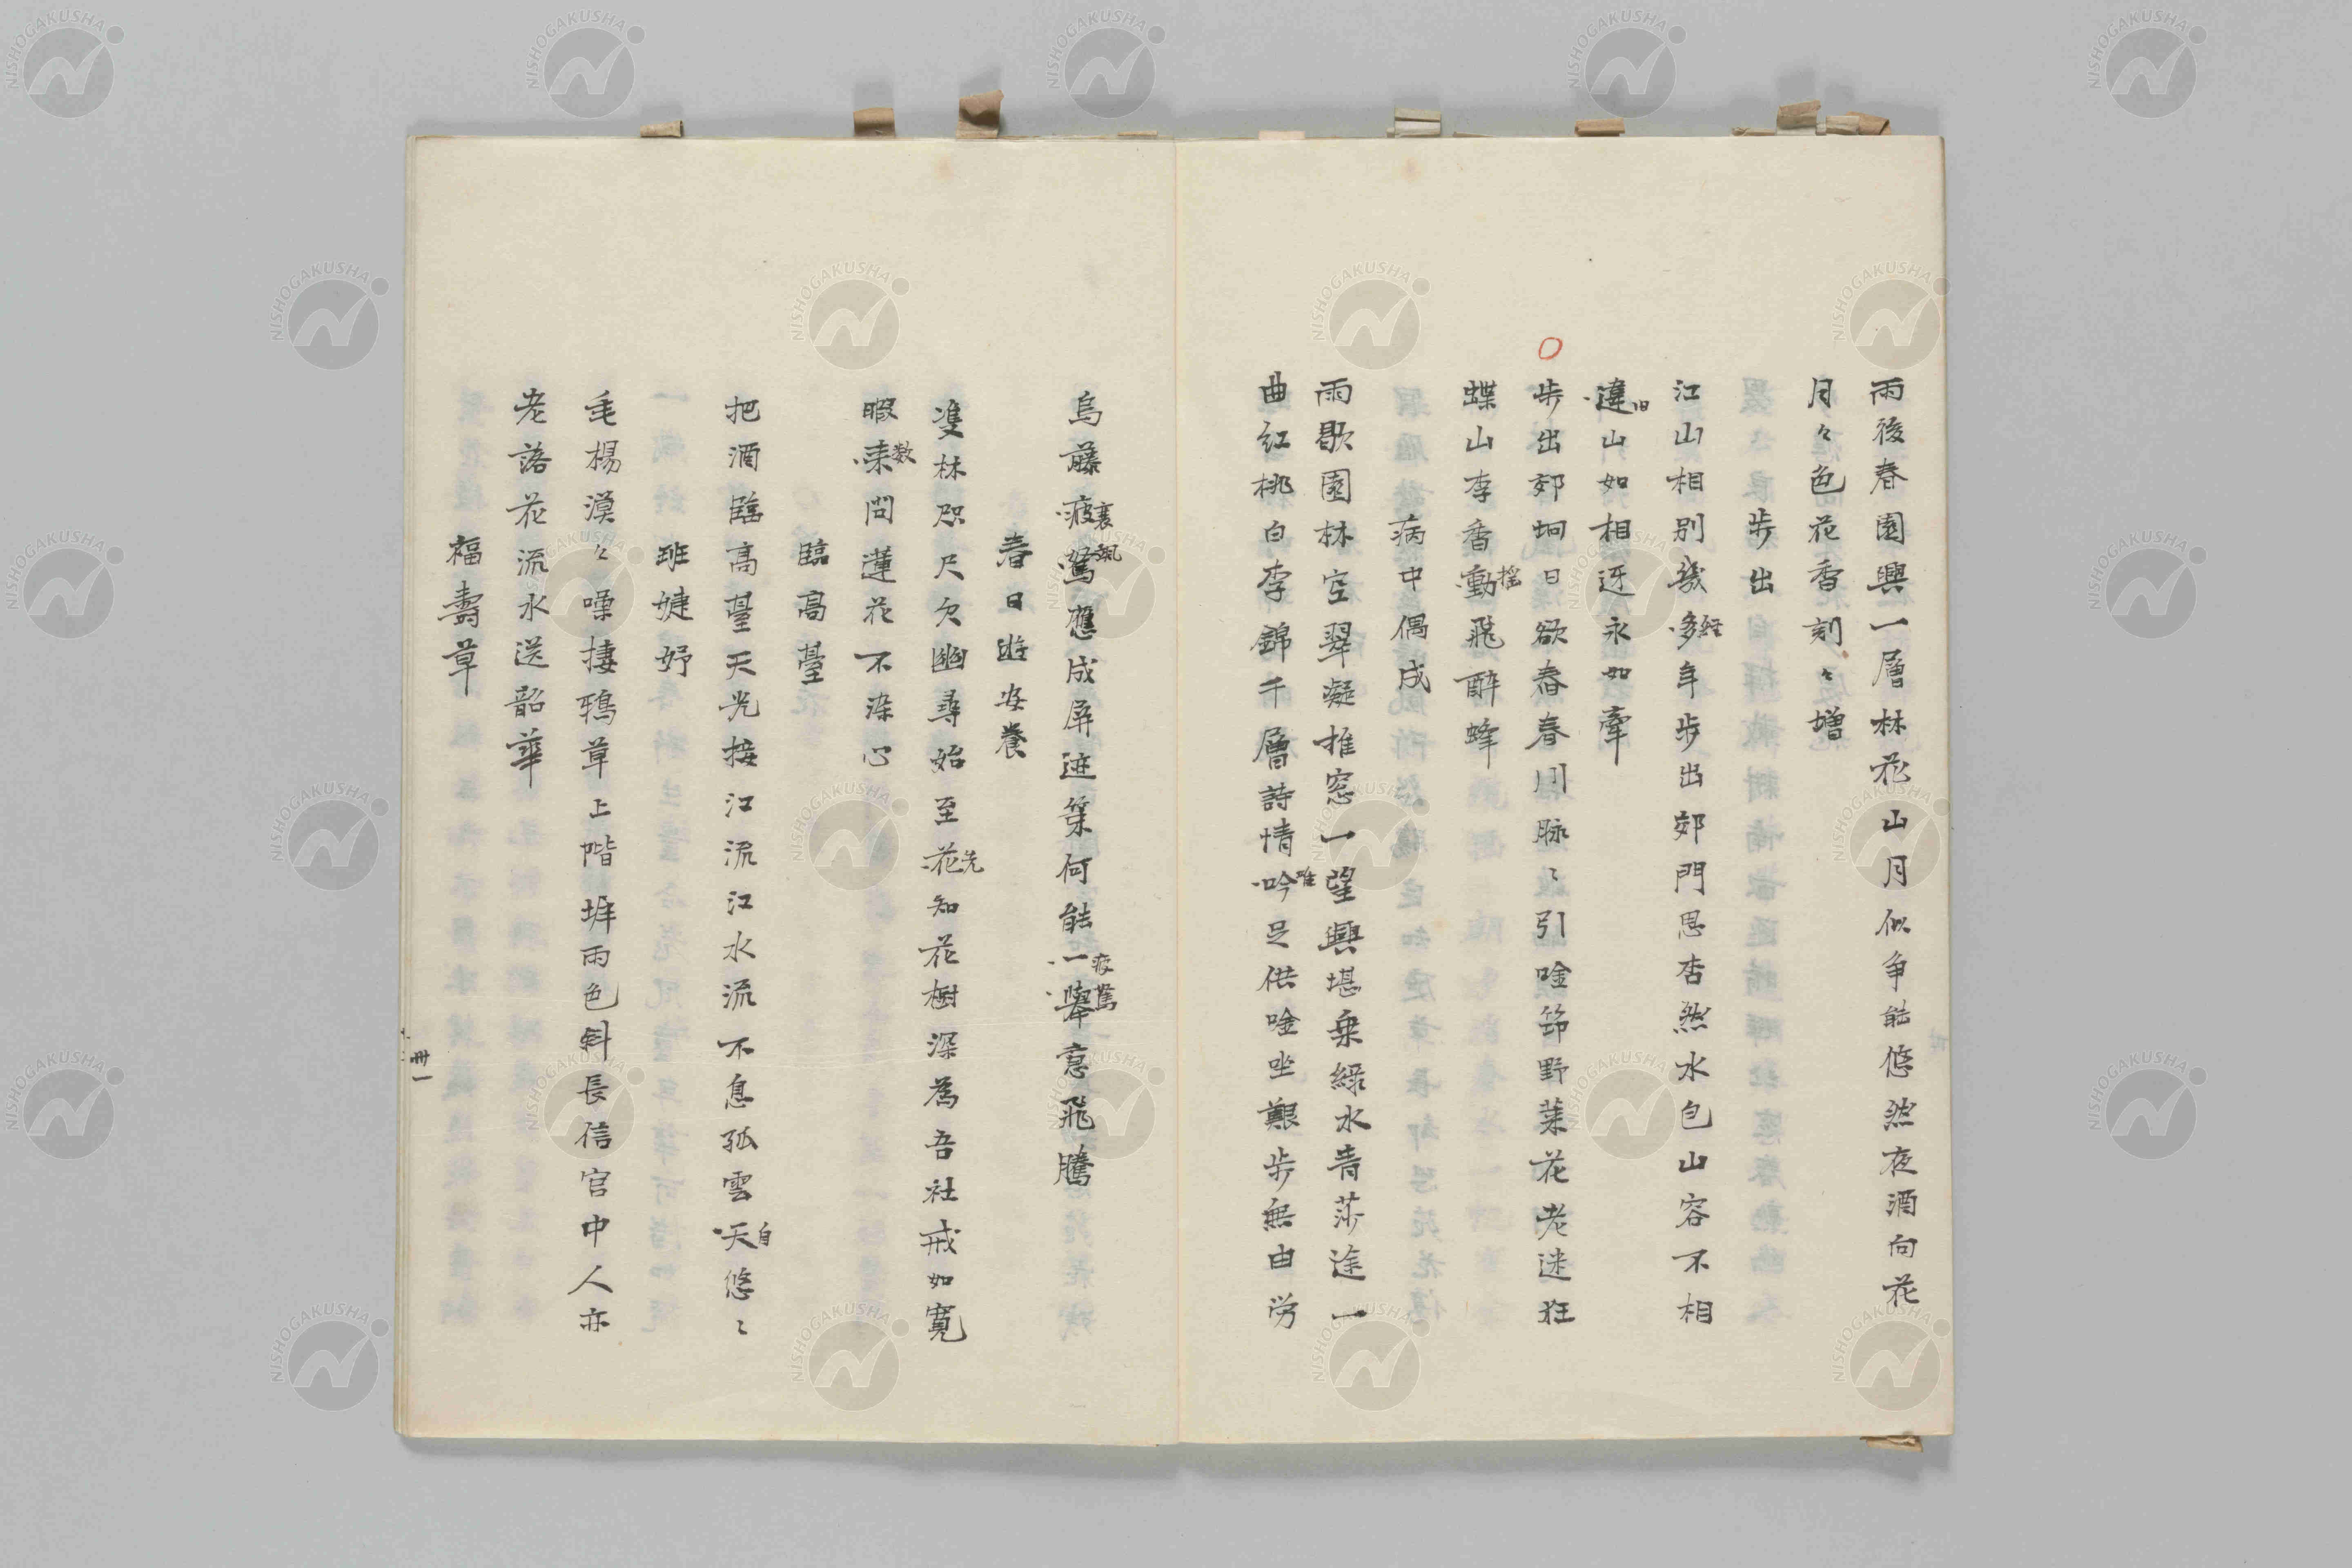 雨後春園興一層林花山月似争能悠然夜酒向花
月々色花香刻々増
歩出
江山相別幾多年歩出郊門思杳然水包山容不相
経
違山如相迓水如牽
旧
○
歩出郊坰日欲春春川脉〻引吟筇野菜花老迷狂
蝶山李香動飛酔蜂
揺
病中偶成
雨歇園林空翠凝推窓一望興堪乗緑水青莎途一
曲紅桃白李錦千層詩情吟足供吟坐艱歩無由労
唯
烏藤疲鸞應成屏迹策何能一挙意飛騰
春日遊安養
隻林咫尺欠幽尋始至花知花樹深為吾社戒如寛
先
暇来問蓮花不染心
数
臨高臺
把酒臨高臺天光接江流江水流不息孤雲天悠〻
自
班婕妤
毛楊漠々噪棲鴉草上階墀雨色斜長信宮中人亦
老落花流水送韶華
福壽草
卌一
NISHOGAKUSHA